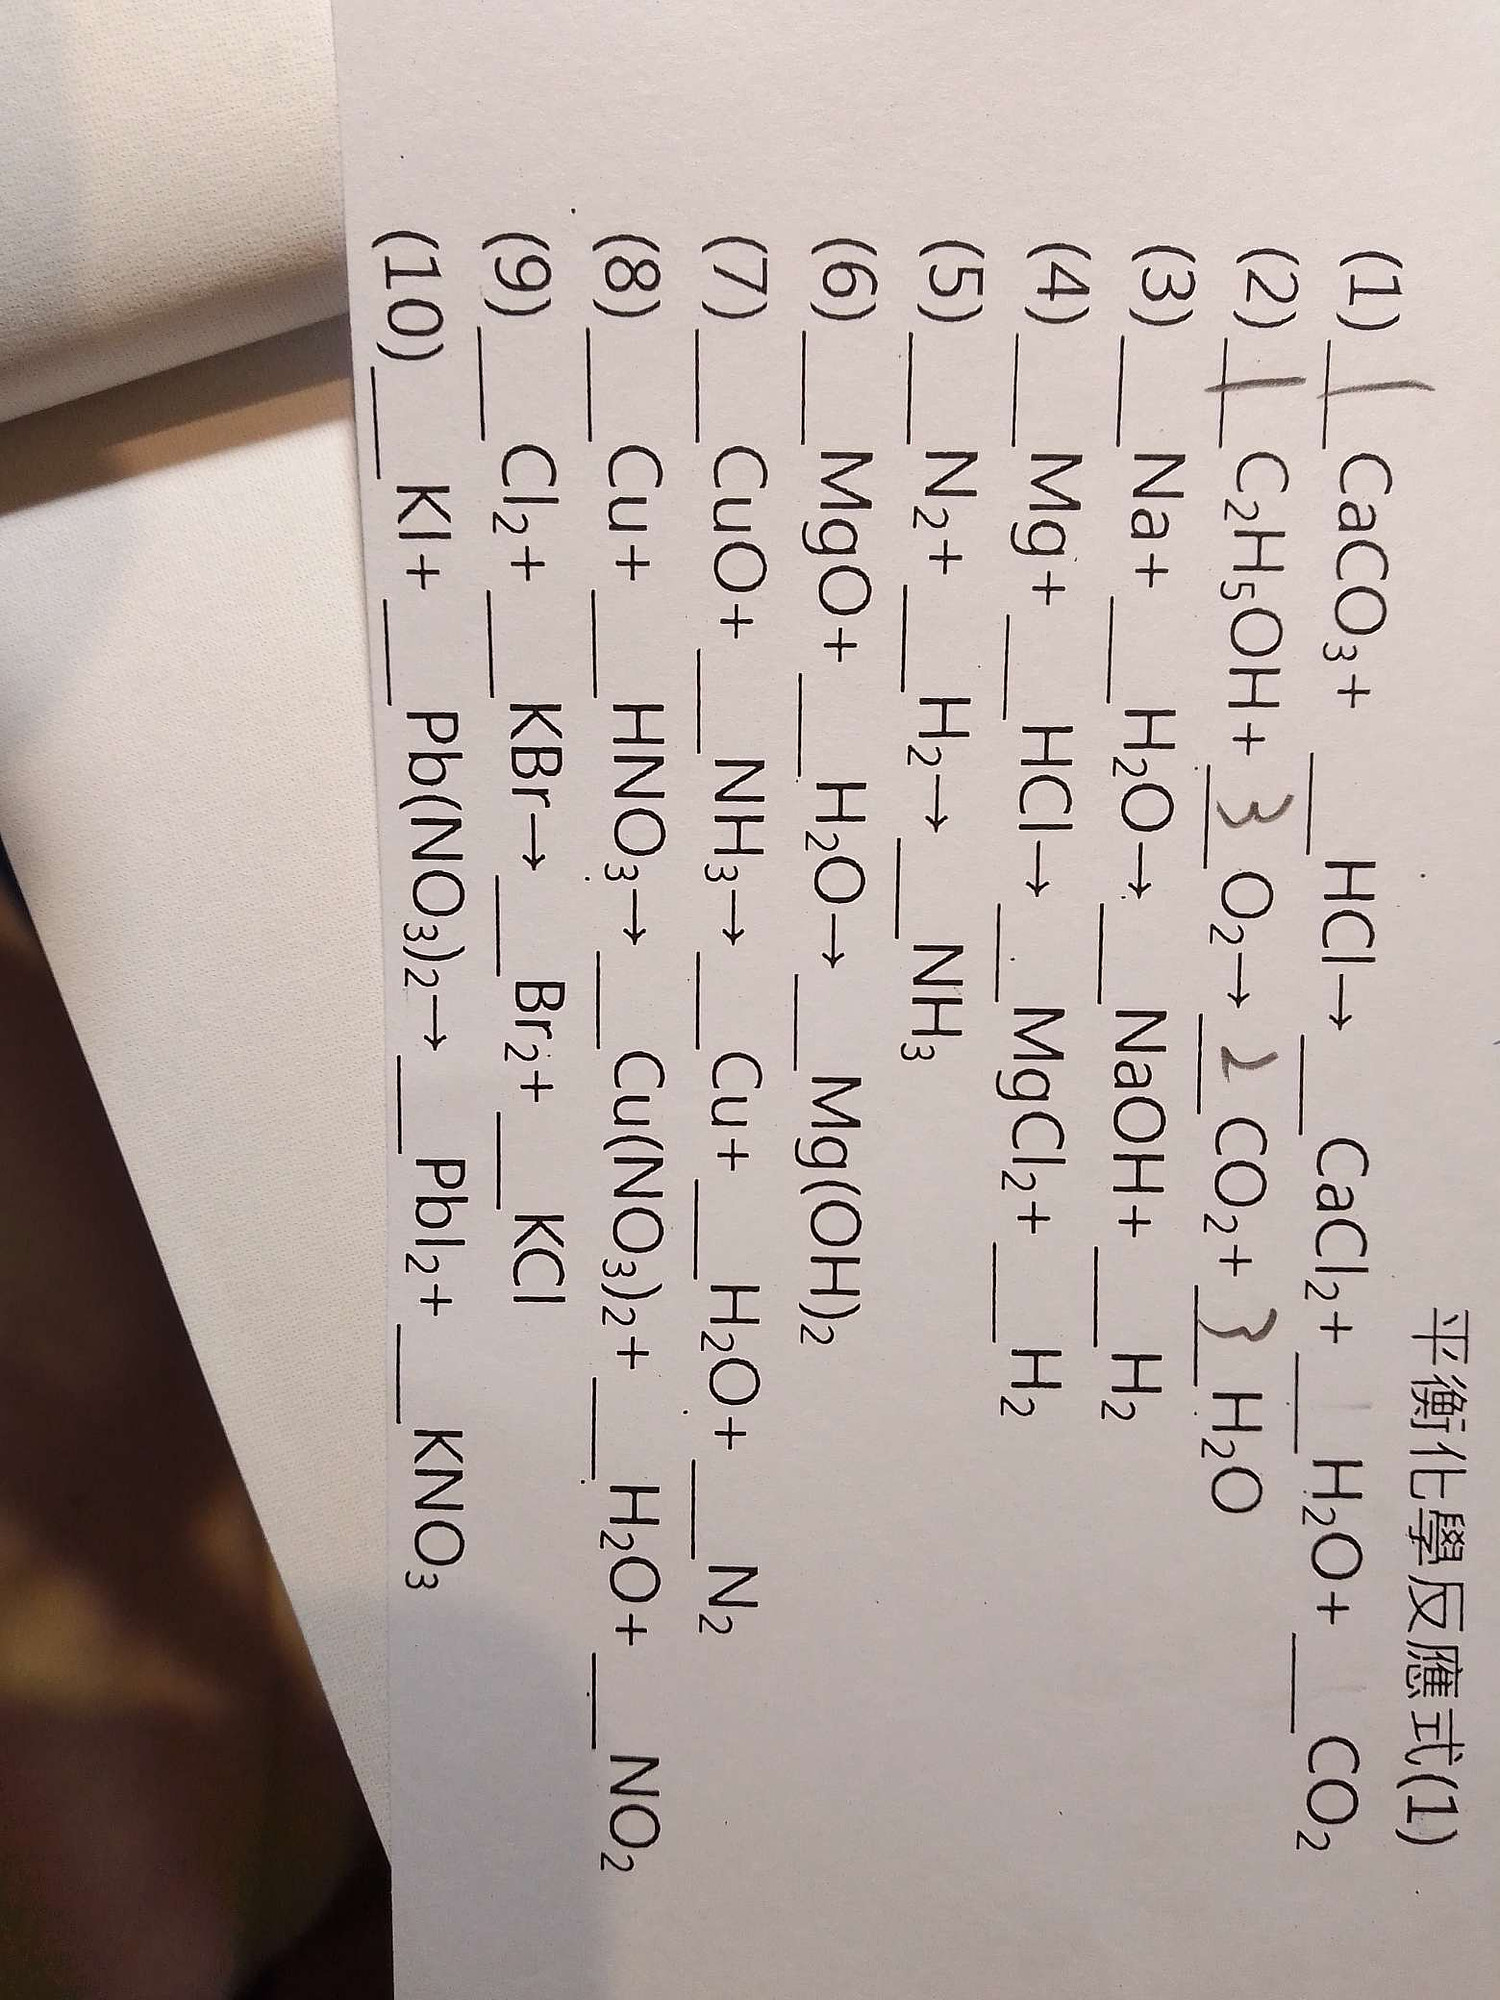 平衡化學反應式(1)
(1) 1 CaCO₃+ ___HCl→ ___CaCl₂+ ___H₂O+ ___CO₂
(2) 1 C₂H₅OH+ 3 O₂→ 2 CO₂+ 3 H₂O
(3)___Na+ ___H₂O→ ___NaOH+ ___H₂
(4)___Mg+ ___HCl→ ___MgCl₂+ ___H₂
(5)___N₂+ ___H₂→ ___NH₃
(6)___MgO+ ___H₂O→ ___Mg(OH)₂
(7)___CuO+ ___NH₃→ ___Cu+ ___H₂O+ ___N₂
(8)___Cu+ ___HNO₃→ ___Cu(NO₃)₂+ ___H₂O+ ___NO₂
(9)___Cl₂+ ___KBr→ ___Br₂+ ___KCl
(10)___KI+ ___Pb(NO₃)₂→ ___PbI₂+ ___KNO₃